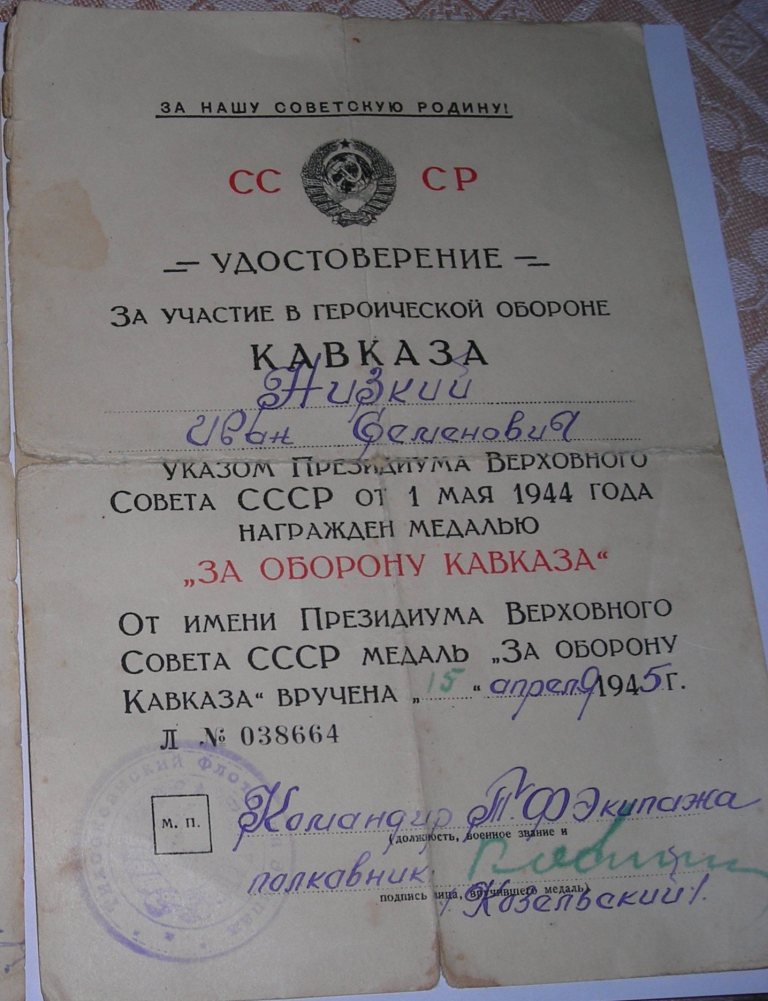 ЗА НАШУ СОВЕТСКУЮ РОДИНУ!
СС СР
УДОСТОВЕРЕНИЕ
ЗА УЧАСТИЕ В ГЕРОИЧЕСКОЙ ОБОРОНЕ
КАВКАЗА
Низкий
Иван Семенович
УКАЗОМ ПРЕЗИДИУМА ВЕРХОВНОГО
СОВЕТА СССР ОТ 1 МАЯ 1944 ГОДА
НАГРАЖДЕН МЕДАЛЬЮ
„ЗА ОБОРОНУ КАВКАЗА“
ОТ ИМЕНИ ПРЕЗИДИУМА ВЕРХОВНОГО
СОВЕТА СССР МЕДАЛЬ „ЗА ОБОРОНУ
КАВКАЗА“ ВРУЧЕНА „15“ апреля 1945 г.
Л № 038664
М. П.
Командир Т.Ф Экипажа
(должность, военное звание и
полкавник
подпись лица, вручившего медаль)
/Козельский/.